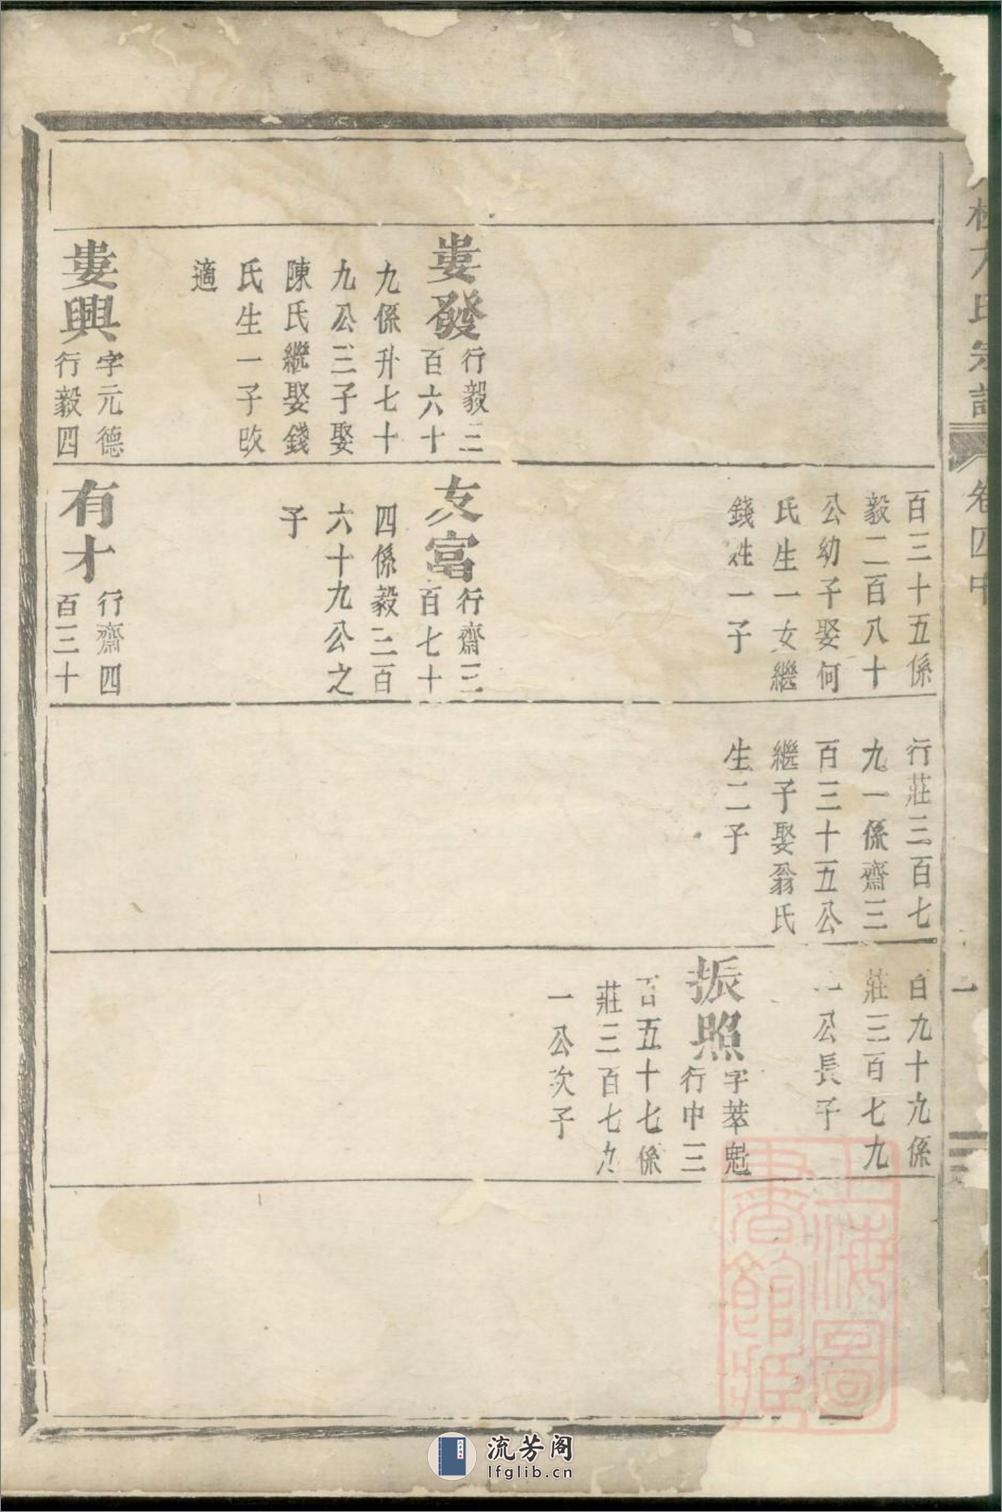 方氏宗譜
卷四中
一
婁發
行毅三
百六十
九係升七十
九公三子娶
陳氏繼娶錢
氏生一子改
適
婁興
字元德
行毅四
百三十五係
毅二百八十
公幼子娶何
氏生一女繼
錢姓一子
友富
行齋三
百七十
四係毅三百
六十九公之
子
有才
行齋四
百三十
行莊三百七
九一係齋三
百三十五公
繼子娶翁氏
生二子
百九十九係
莊三百七九
一公長子
振照
字萃魁
行中三
百五十七係
莊三百七九
一公次子
上海圖書館藏
流芳阁
lfglib.cn